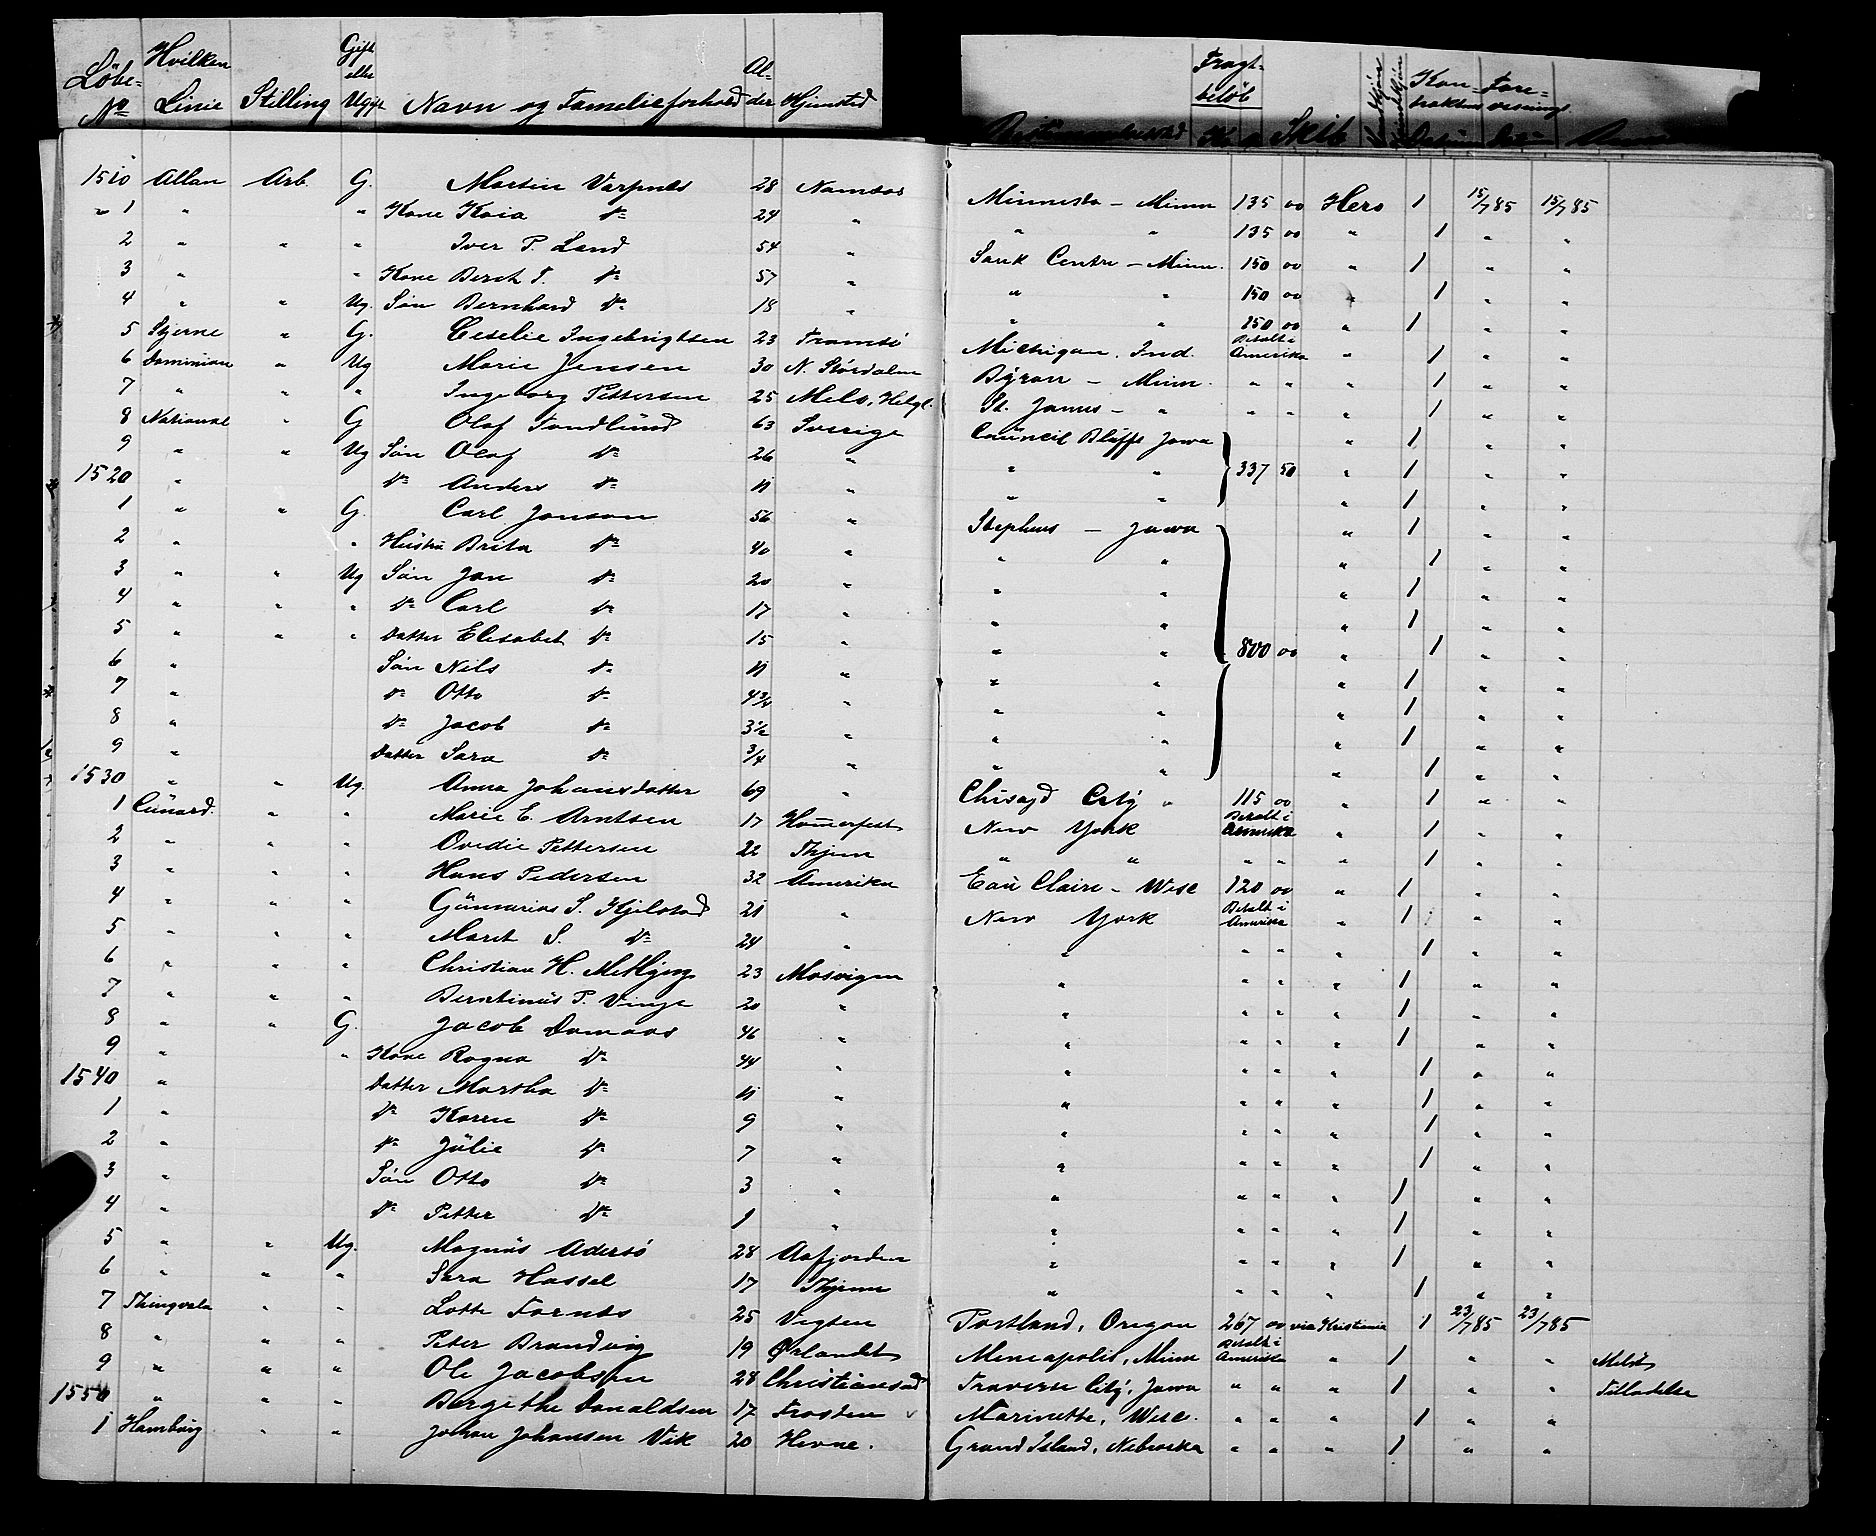 Löbe- No Hvilken Linie Stilling Gift eller Ugift Navn og Familieforhold Al- der Hjemsted Bestemmelsessted Fragt- beløb Kr Ø Skib Mandkjön Kvindekjön Kon- trakten Datum Fore- visnings Datum
1510 Allan Arb. G. Martin Varpnes 28 Namsos Minnesota - Minn 135 00 Hero 1 15/7 85 15/7 85
" 1 " " Kone Kaia do 24 " " " 135 00 " 1 " "
2 " " " Iver P. Land 54 " Sauk Centre - Minn. 150 00 " 1 " "
3 " " Kone Beret T. do 57 " " " 150 00 " 1 " "
4 " " Ug. Søn Bernhard do 18 " " " 150 00 " 1 " "
5 Stjerne " G. Ceselie Ingebrigtsen 23 Tromsö Michigan, Ind. Betalt i Amerika " 1 " "
6 Dominion " Ug Marie Jensen 30 N. Stördalen Byron - Minn. " " " 1 " "
7 " " " Ingeborg Pettersen 25 Melo, Helgl. St. James - " " " " 1 " "
8 National " G Olof Sundlund 63 Sverige Council Bluffs Jowa " 1 " "
9 " " Ug Søn Olof do 26 " " " 337 50 " 1 " "
1520 " do Anders do 11 " " " " 1 " "
1 " " G. Carl Jonson 56 " Stephens - Jowa " 1 " "
2 " " Hustru Brita do 40 " " " " 1 " "
3 " " Ug Søn Jon do 20 " " " " 1 " "
4 " " " do Carl do 17 " " " " 1 " "
5 " " " Datter Elisabet do 15 " " " 800 00 " 1 " "
6 " Søn Nils do 11 " " " " 1 " "
7 " do Otto do 4 3/4 " " " " 1 " "
8 " do Jacob do 3 1/2 " " " " 1 " "
9 " Datter Sara do 3/4 " " " " 1 " "
1530 " " Ug. Anna Johansdatter 69 " Chisago City " 115 00 " 1 " "
1 Cunard. " " Marie E. Arntsen 17 Hammerfest New York Betalt i Amerika " 1 " "
2 " " " Ovedie Pettersen 22 Thjem " " " " " 1 " "
3 " " " Hans Pedersen 32 Amerika Eau Claire - Wisc 120 00 " 1 " "
4 " " " Gunnarius S. Kjelstad 21 " New York Betalt i Amerika " 1 " "
5 " " " Maret S. do 24 " " " " " 1 " "
6 " " " Christian H. 23 Mosvigen " " " " 1 " "
7 " " " Berntinus P. Vinge 20 " " " " " 1 " "
8 " " G. Jacob Damaas 46 " " " " " 1 " "
9 " " Kone Ragna do 44 " " " " " 1 " "
1540 " Datter Martha do 11 " " " " " 1 " "
1 " do Karen do 9 " " " " " 1 " "
2 " do Julie do 7 " " " " " 1 " "
3 " Søn Otto do 3 " " " " " 1 " "
4 " do Petter do 1 " " " " " 1 " "
5 " " Ug. Magnus Adersö 28 Aafjorden " " " " 1 " "
6 " " " Sara Hassel 17 Thjem " " " " 1 " "
7 Thingvala " " Lotte Fornes 25 Vigten Portland, Oregon 267 00 via Kristiania 1 23/7 85 23/7 85
8 " " " Peter Brandvig 19 Ørlandet Mineapolis, Minn Betalt i Amerika " 1 " "
9 " " " Ole Jacobsen 28 Christiansud Traverse City, Jowa " " " 1 " " Tilladelse
1550 " " " Bergithe Donaldsen 17 Frosten Marinette, Wisc. " " " 1 " "
1 Hamburg " " Johan Johansen Vik 20 Hevne. Grand Island, Nebraska " " " 1 " "